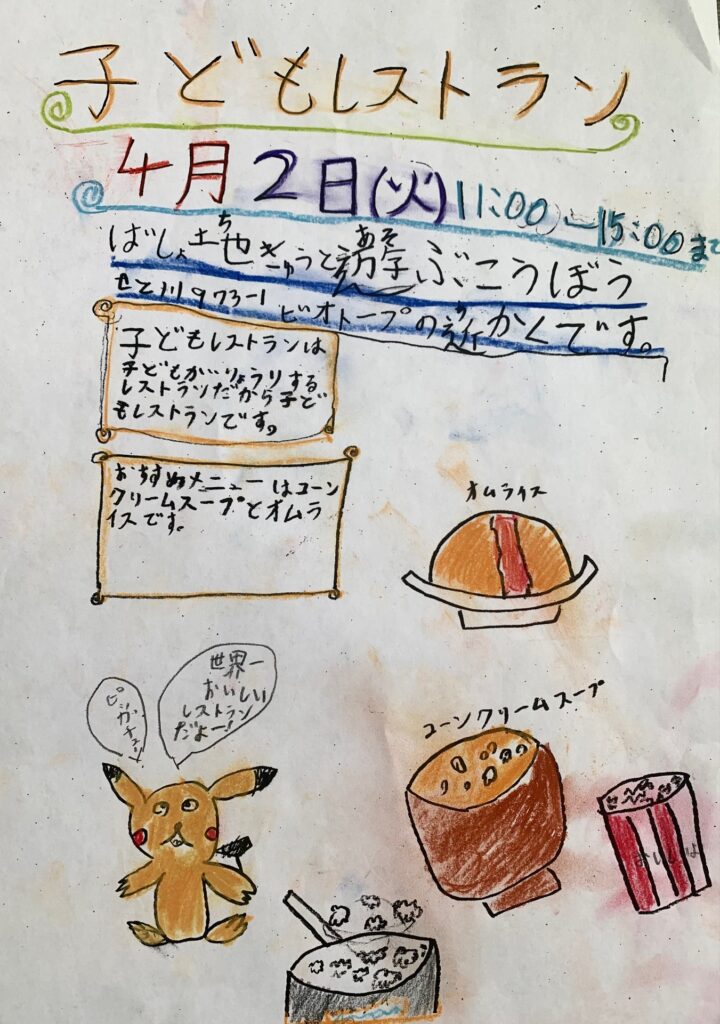 子どもレストラン
4月2日(火)11:00〜15:00まで
ばしょ土地きゅうと遊ぶこうぼう
973-1 ビオトープの近かくです。
子どもレストランは
子どもがりょうりする
レストランだから子ど
もレストランです。
おすすめメニューはコーン
クリームスープとオムラ
イスです。
オムライス
世界一
おいしい
レストラン
だよー!
ピカチュウ
コーンクリームスープ